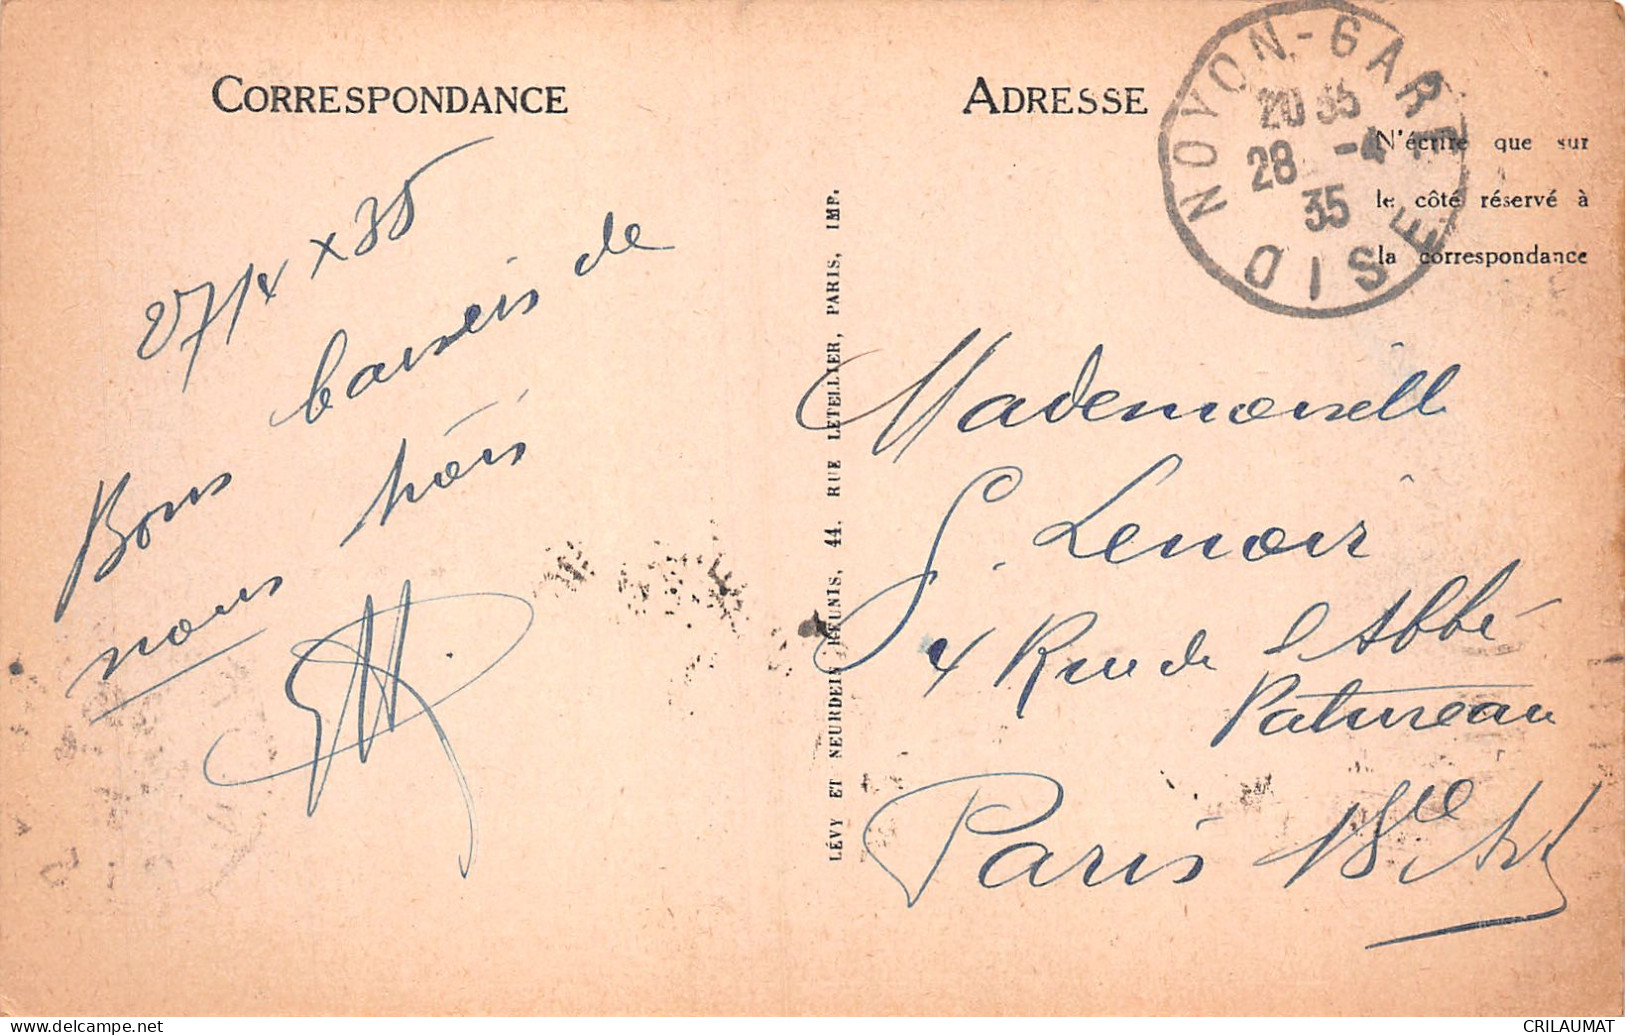 CORRESPONDANCE
27/4 x 35
Bons baiseis de
nous trois
ADRESSE
N'écrire que sur
le côté réservé à
la correspondance
NOYON-GARE
20 35
28 -4
35
OISE
LÉVY ET NEURDEIN RÉUNIS, 44, RUE LETELLIER, PARIS, IMP.
Mademoiselle
S. Lenoir
4 Rue de l'Abbé
Patureau
Paris 18e Art
CRILAUMAT